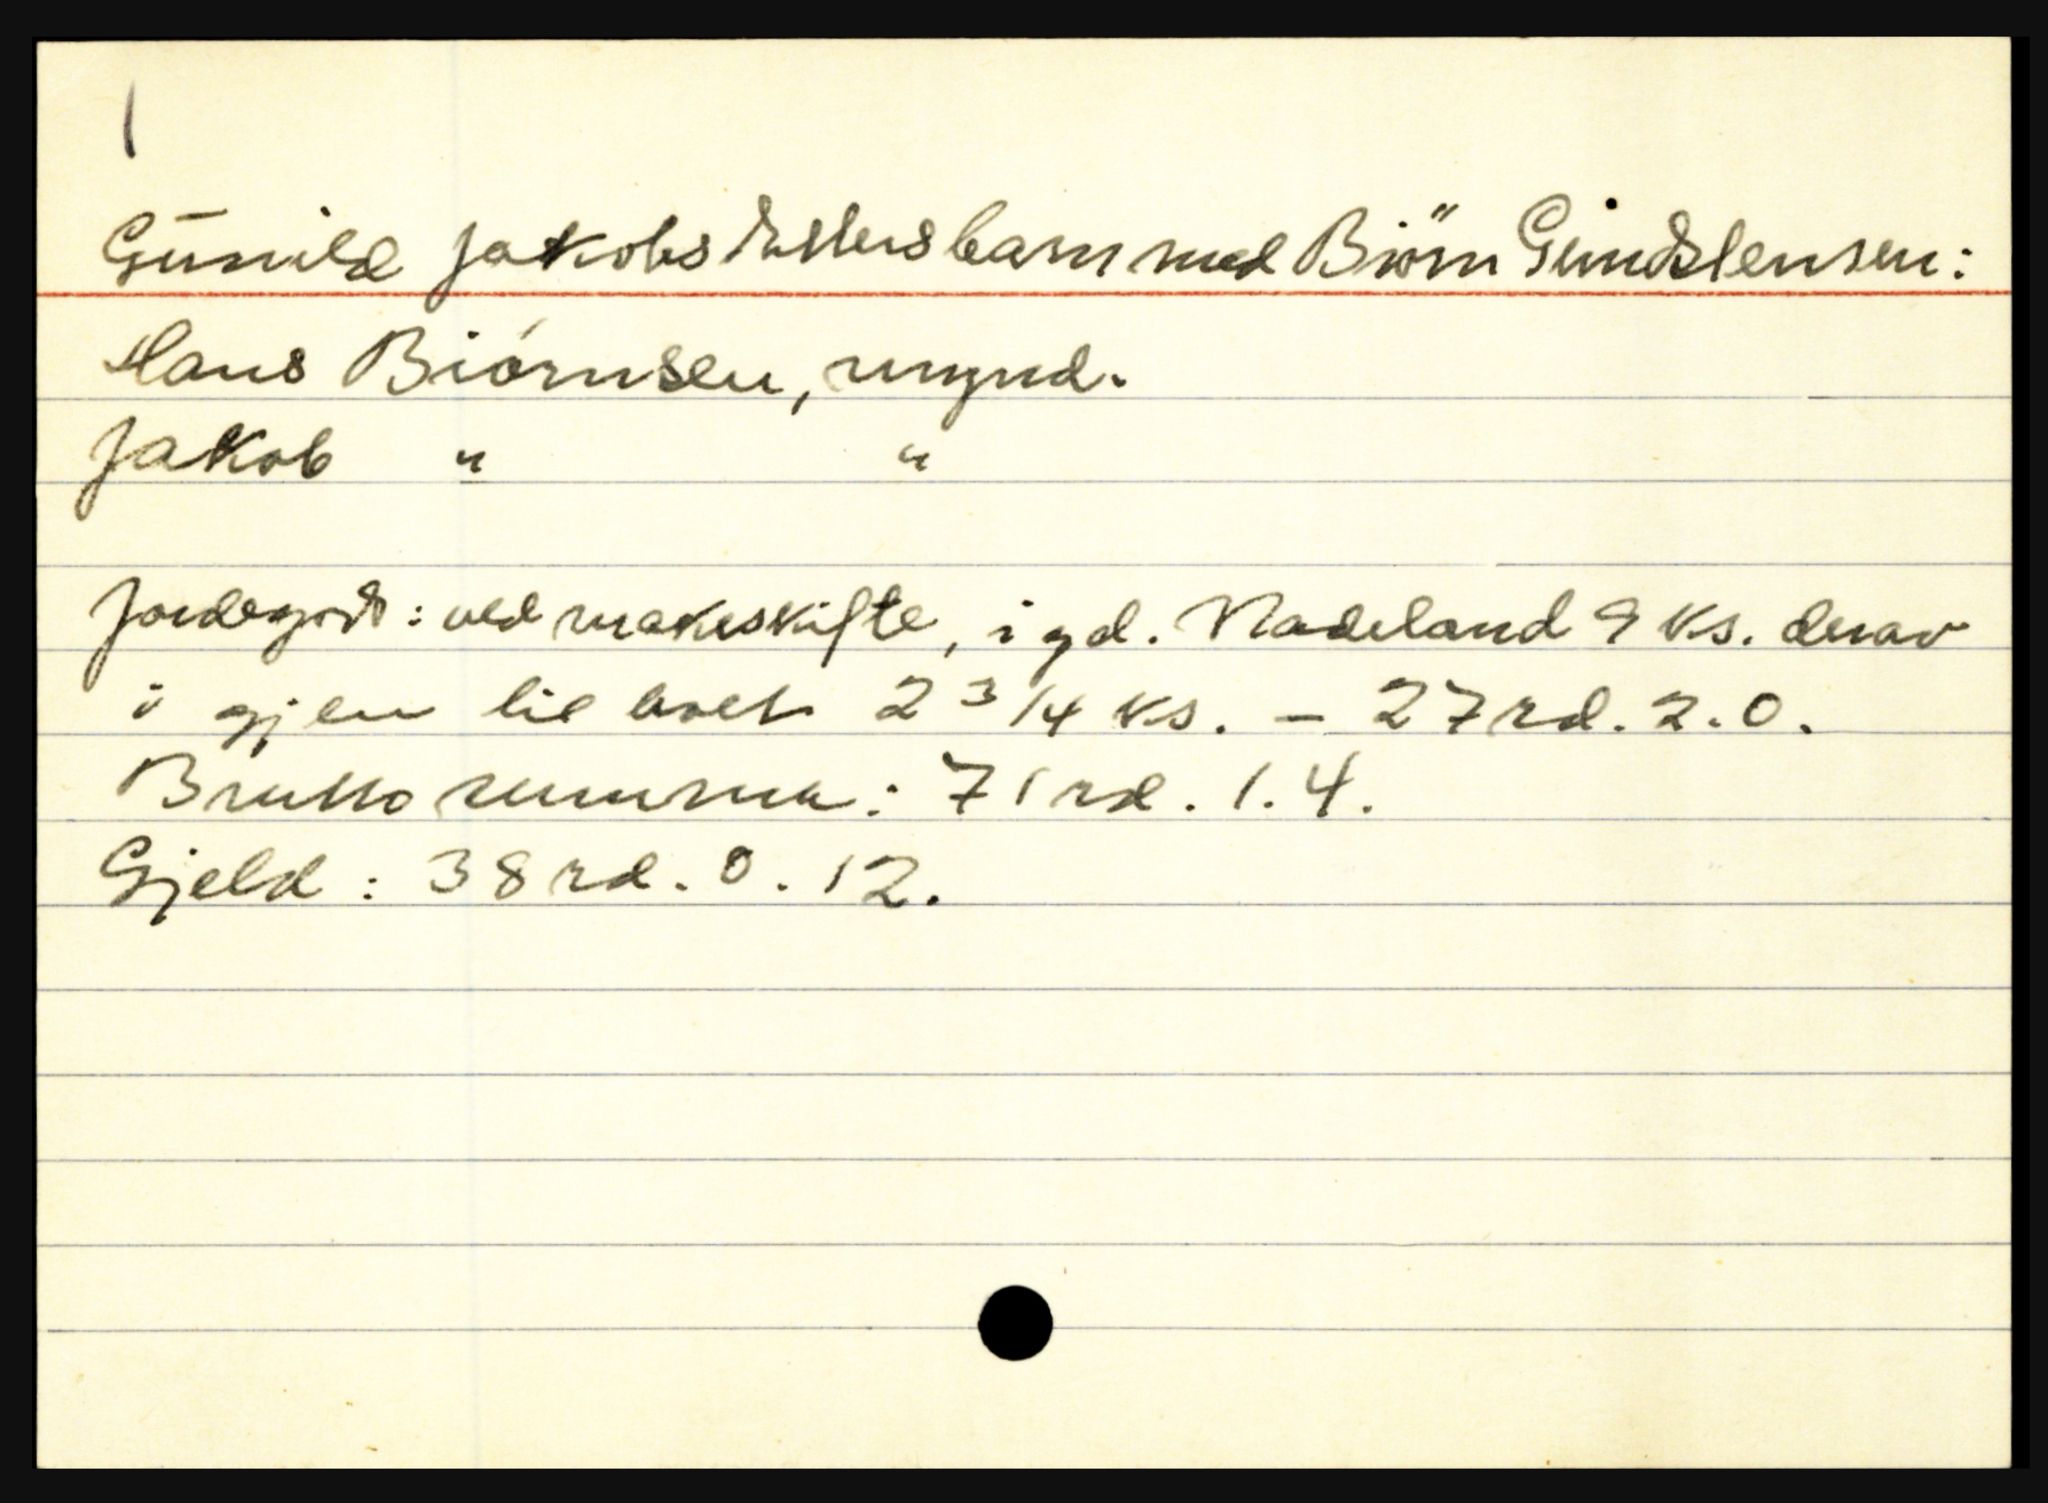 1
Günild Jakobsdattersbarn med Biörn Geruldsensen:
Hans Biörnsen, mynd.
Jakob " "
Jordegods: ved makeskifte, i gd. Nadeland 9 ks. derav
i gjen til boet 2 3/4 ks. – 27 rd. 2.0.
Brutto summa: 71 rd. 1.4.
Gjeld: 38 rd. 0.12.